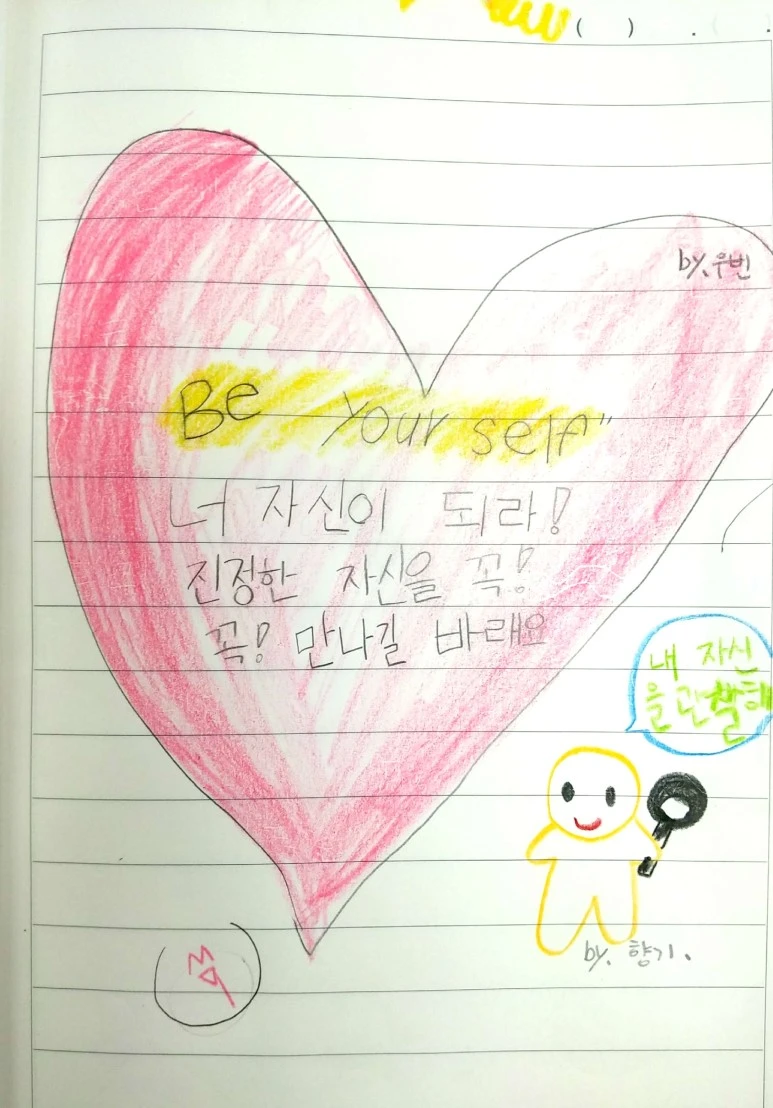 ( ) . .
by. 우빈
Be your self"
너 자신이 되라!
진정한 자신을 꼭!
꼭! 만나길 바래요
내 자신
을 관찰해
by. 향기.